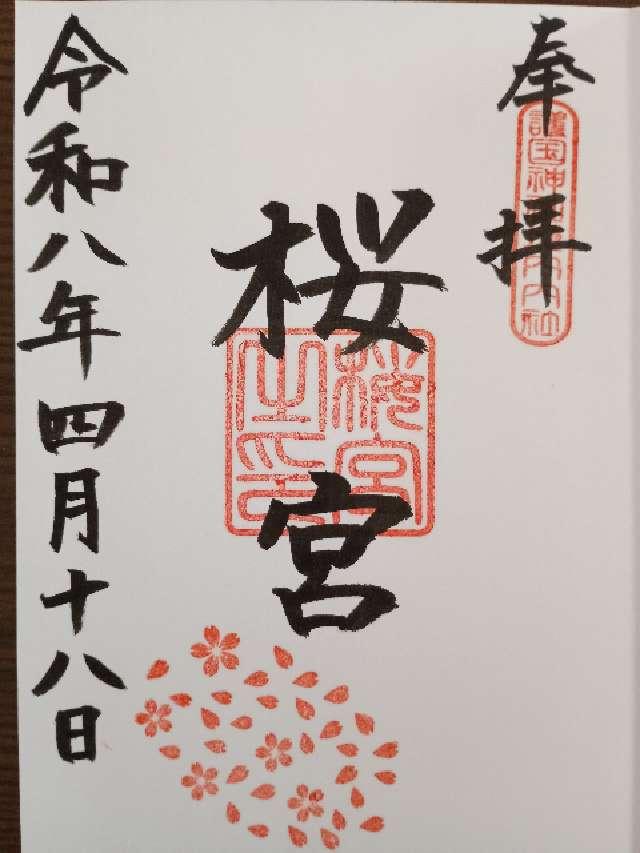 奉拝
護国神社境内社
桜宮
桜宮之印
令和八年四月十八日